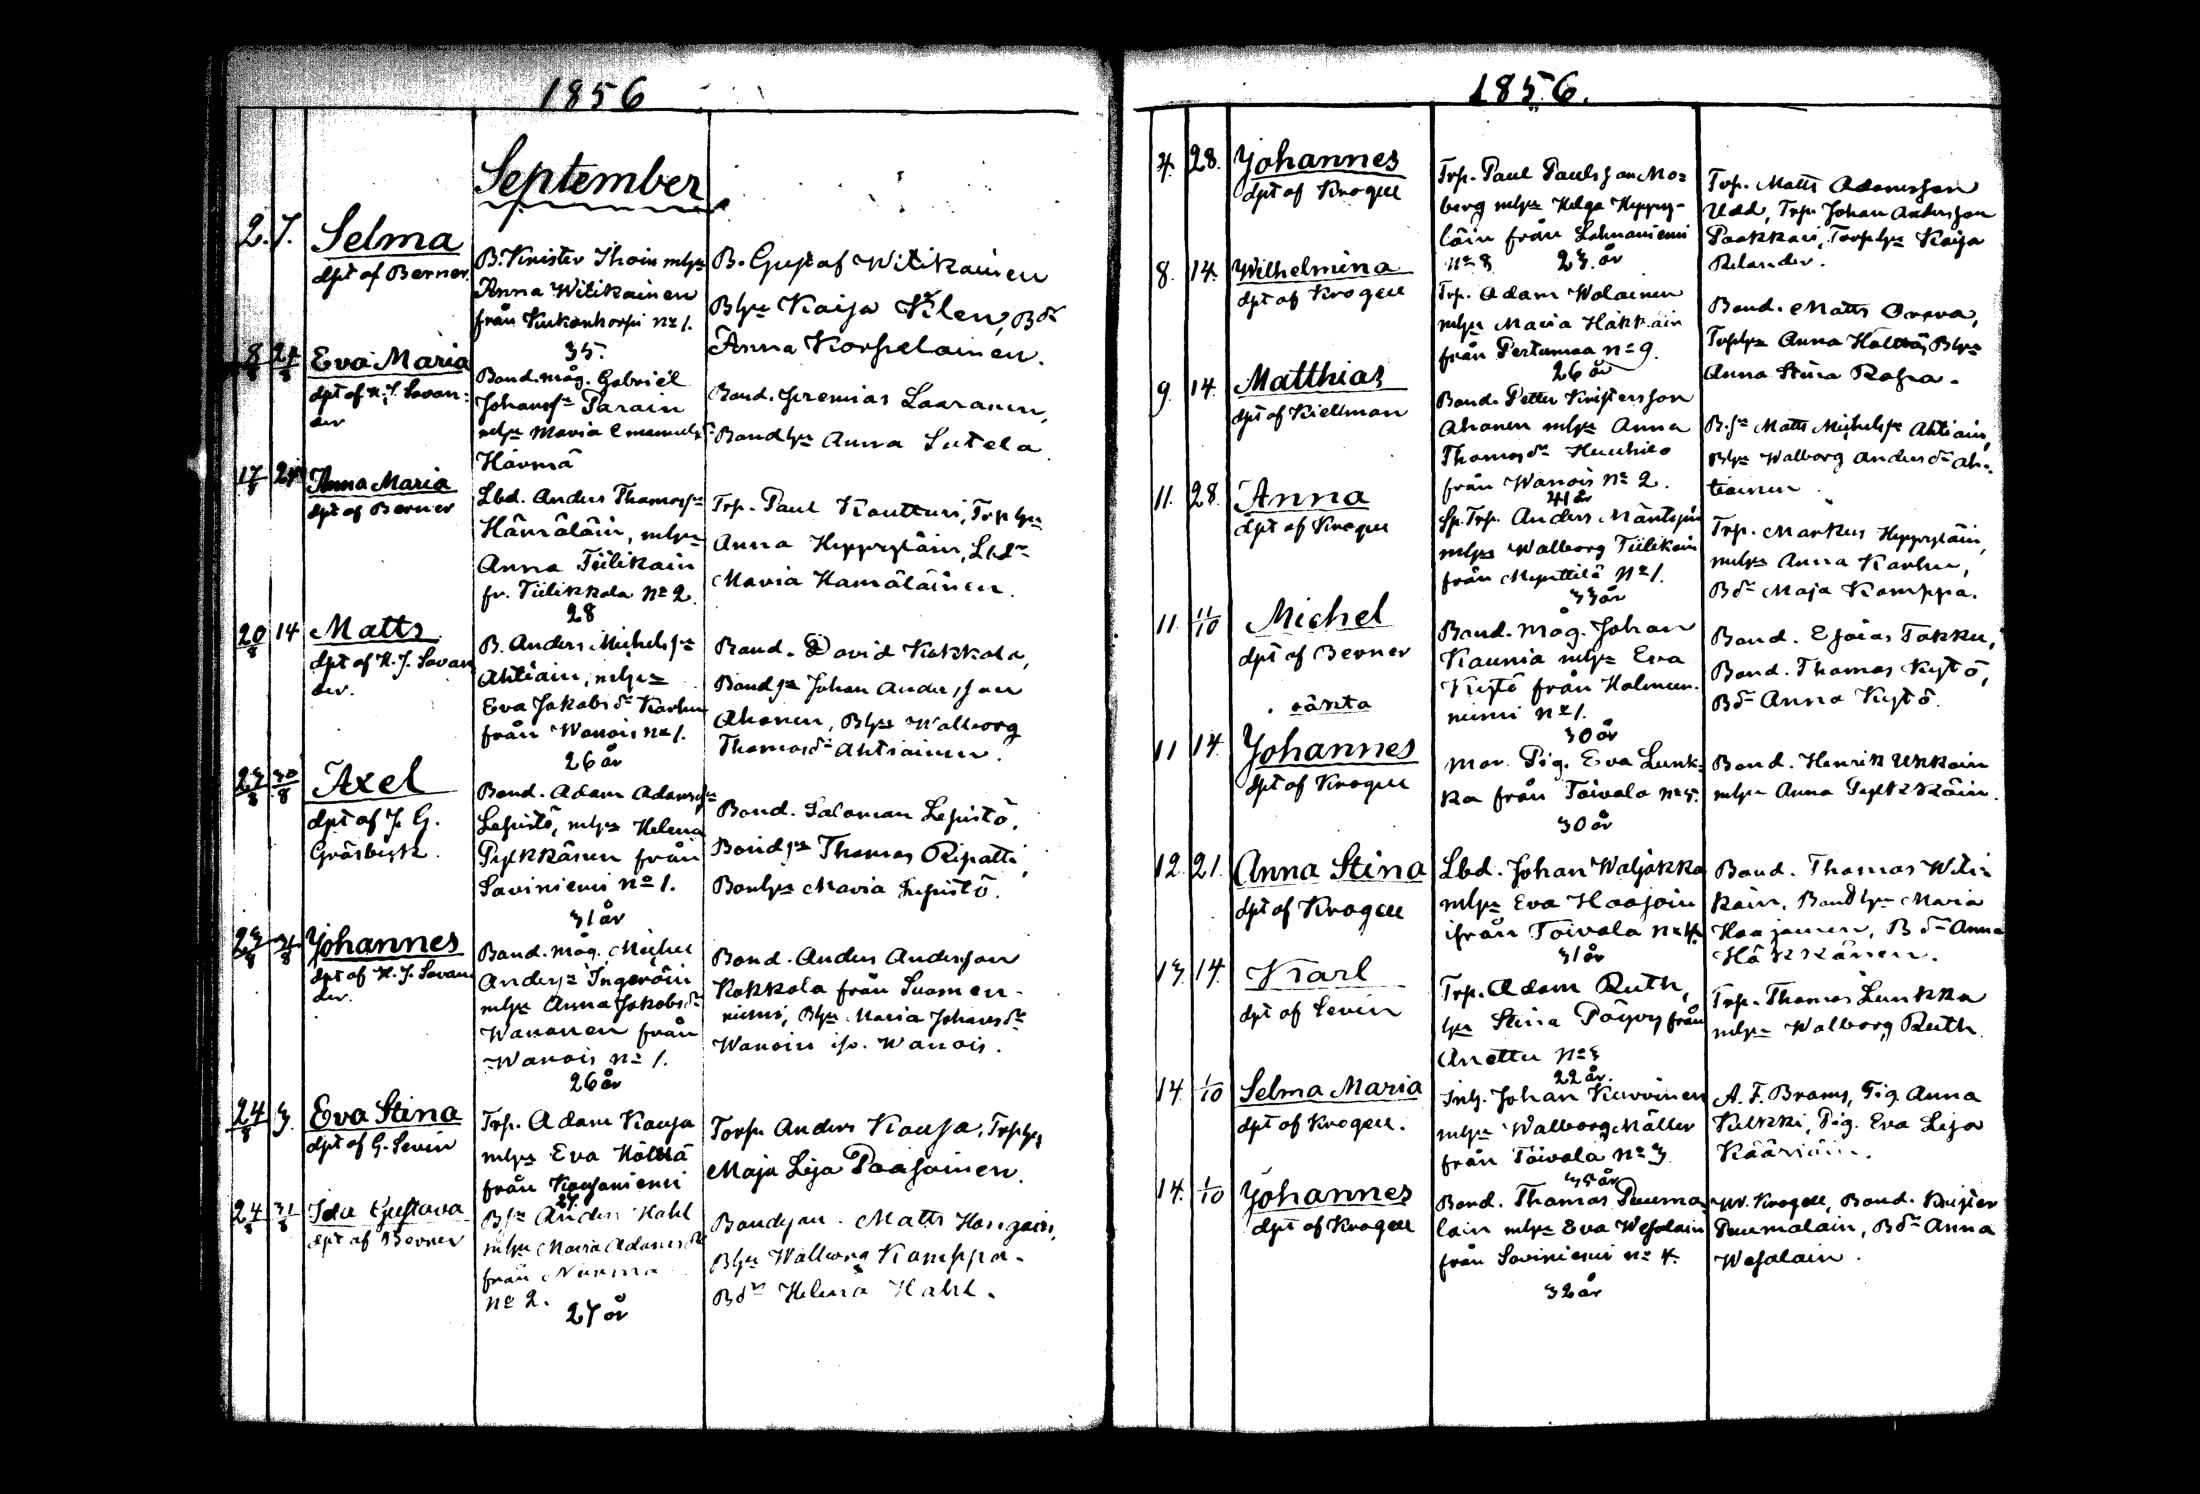 1856
September
2. 7. Selma
dpt af Berner.
B. Krister Ihoin mhu
Anna Witikainen
från Kukonhorju No 1.
35.
B. Gustaf Witikainen
Bhu Kaija Kilen, Bdr
Anna Korpelainen.
8/8 24/8 Eva Maria
dpt af H. J. Savan-
der
Bond.måg. Gabriel
Johanss. Parain
mhu Maria Emanuelsd.
Härmä
Bond. Jeremias Laaranen,
Bondhu Anna Sutela
17/8 24 Anna Maria
dpt af Berner
Lbd. Anders Thomass.
Hämäläin, mhu
Anna Tiilikain
fr. Tiilikkala No 2.
28
Trp. Paul Kautturi, Trphu
Anna Heppryläin, Lbdr
Maria Hamäläinen.
20/8 14 Matts
dpt af H. J. Savan
der.
B. Anders Michelss.
Ahtiain, mhu
Eva Jakobsdr Karhu
från Wanois No 1.
26 år
Bond. David Kokkola,
Bondsn Johan Andersson
Ahonen, Bhu Walborg
Thomasdr Ahtiainen.
23/8 30/8 Axel
dpt af J. G.
Gräsbeck.
Bond. Adam Adamss.
Lepistö, mhu Helena
Pylkkäsen från
Saviniemi No 1.
31 år
Bond. Salomon Lepistö,
Bondsn Thomas Ripatti,
Bonhu Maria Lepistö.
23/8 31/8 Johannes
dpt af H. J. Savan
der.
Bond. måg. Michel
Anderss. Ingeröin
mhu Anna Jakobsdr
Wananen från
Wanois No 1.
26 år
Bond. Anders Andersson
Kokkola från Suomen-
niemi, Bhu Maria Johansdr
Wanoin ifr. Wanois.
24/8 3. Eva Stina
dpt af G. Sevin
Trp. Adam Kausa
mhu Eva Hölttä
från Kausaniemi
27.
Torp. Anders Kausa, Trphu
Maja Lisa Paasoinen.
24/8 31/8 Ida Gustava
dpt af Berner
Bsn Anders Hahl
mhu Maria Adamsdr
från Nurma
No 2.
27 år
Bondeson. Matts Hongain,
Bhu Walborg Kamppa.
Bdr Helena Hahl.
1856.
4. 28. Johannes
dpt af Krogell
Trp. Paul Paulsson Mo-
berg mhu Helga Heppry-
läin från Lahnaniemi
No 8 23. år
Trp. Matts Adamsson
Udd, Trp. Johan Andersson
Paakkari, Torphu Kaija
Relander.
8. 14. Wilhelmina
dpt af Krogell
Trp. Adam Walainen
mhu Maria Häkkäin
från Pertumaa No 9.
26 år
Bond. Matts Orava,
Trphu Anna Hölttä, Bhu
Anna Stina Rapa.
9. 14. Matthias
dpt af Kiellman
Bond. Petter Kristersson
Ahonen mhu Anna
Thomasdr Huuhilo
från Wanois No 2.
41 år
B.sn Matts Michelss. Ahtiain,
Bhu Walborg Andersdr Ah-
tiainen.
11. 28. Anna
dpt af Krogell
Sp.Trp. Anders Mäntyin
mhu Walborg Tiilikain
från Mynttilä No 1.
33 år
Trp. Markus Heppryläin,
mhu Anna Karhu,
Bdr Maja Kamppa.
11. 11/10 Michel
dpt af Berner
Bond. måg. Johan
Kaunia mhu Eva
Kytö från Halmen-
niemi No 1.
30 år
Bond. Esaias Takku,
Bond. Thomas Kytö,
Bdr Anna Kytö.
oäkta
11 14. Johannes
dpt af Krogell
mor. Pig. Eva Lunk-
ka från Toivola No 5.
30 år
Bond. Henrik Ukkain
mhu Anna Pylkkäin.
12. 21. Anna Stina
dpt af Krogell
Lbd. Johan Waljakka
mhu Eva Haajain
ifrån Toivola No 4.
31 år
Bond. Thomas Witi-
kain, Bondhu Maria
Haajanen, Bdr Anna
Häkkänen.
13. 14. Karl
dpt af Sevin
Trp. Adam Ruth,
hu Stina Pöyry från
Anettu No 3
22 år.
Trp. Thomas Lunkka
mhu Walborg Ruth
14. 1/10 Selma Maria
dpt af Krogell.
Inh. Johan Kurvinen
mhu Walborg Mäller
från Toivola No 3
35 år
A. F. Brams, Pig. Anna
Kukki, Pig. Eva Lisa
Kääriäin.
14. 1/10 Johannes
dpt af Krogell
Bond. Thomas Puuma-
lain mhu Eva Wesalain
från Saviniemi No 4.
32 år
W. Krogell, Bond. Krister
Puumalain, Bdr Anna
Wesalain.